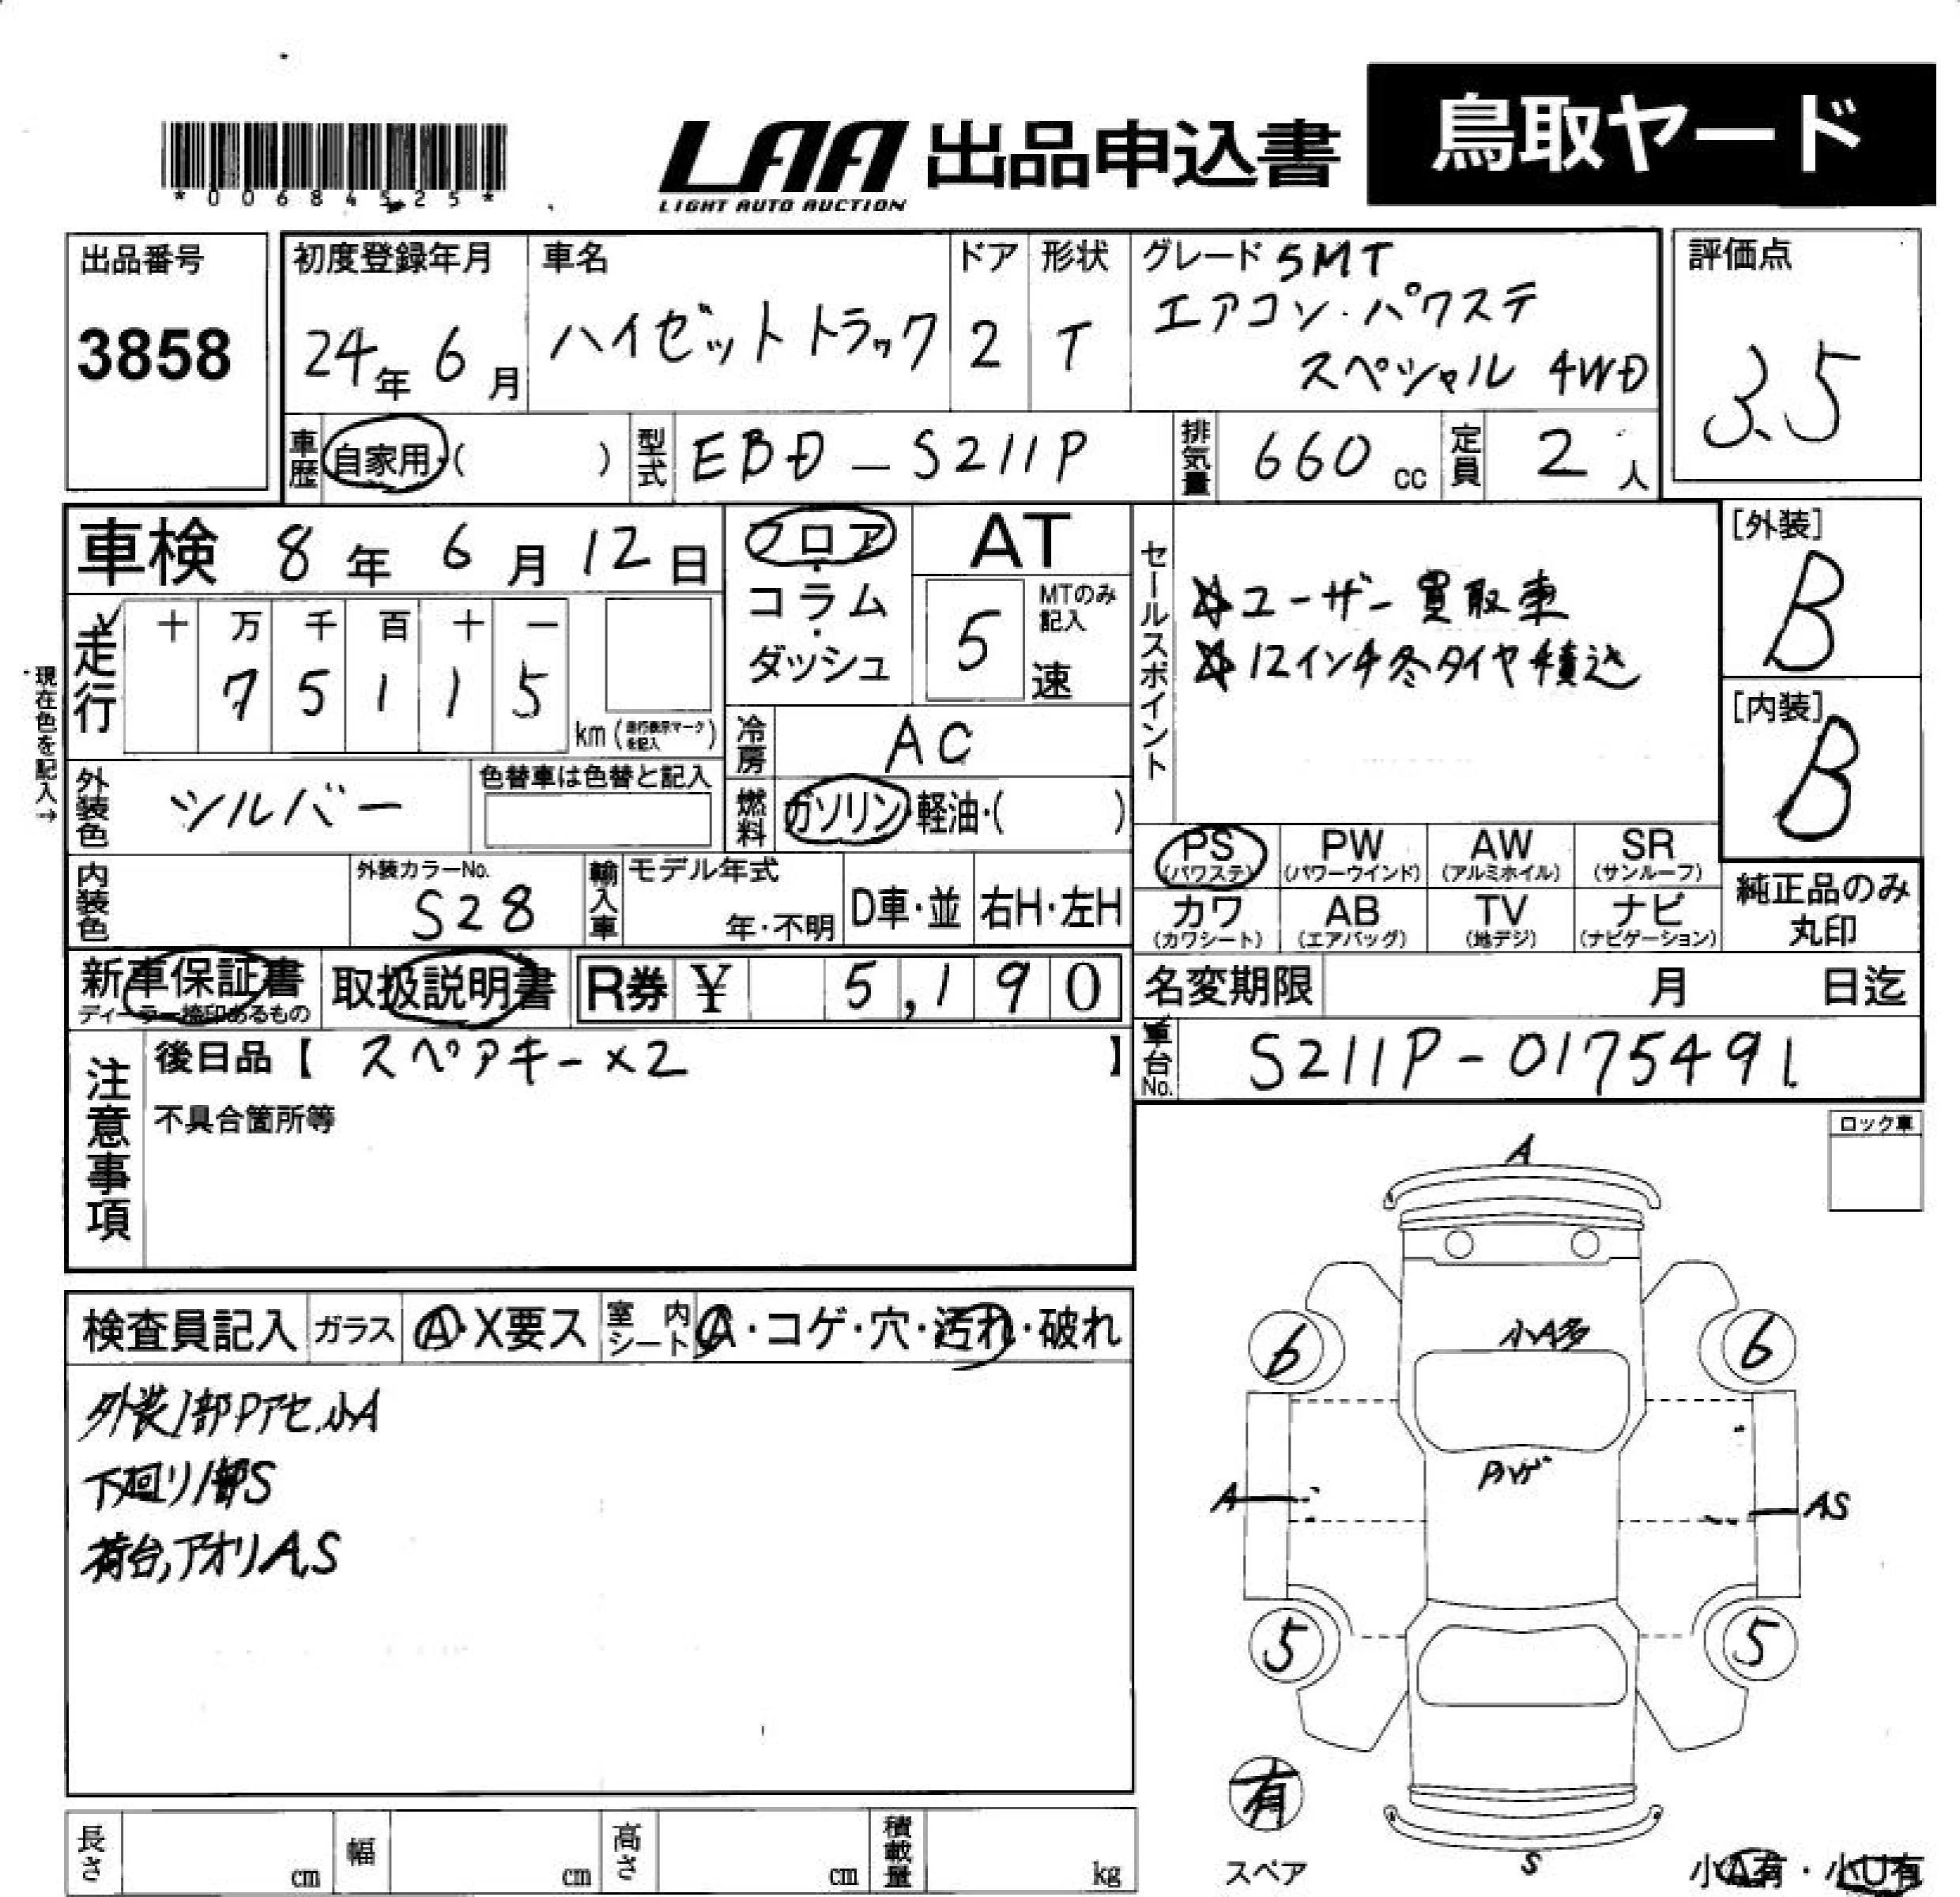 鳥取ヤード
LAA 出品申込書
LIGHT AUTO AUCTION
*00684525*
出品番号
3858
初度登録年月
24年 6月
車名
ハイゼットトラック
ドア
2
形状
T
グレード 5MT
エアコン・パワステ
スペシャル 4WD
評価点
3.5
車歴
自家用・( )
型式
EBD-S211P
排気量
660 cc
定員
2 人
車検 8年 6月 12日
走行
十 万 千 百 十 一
7 5 1 1 5
km (走行表示マークを記入)
現在色を記入→
フロア・コラム・ダッシュ
AT
5
MTのみ記入
速
冷房
AC
燃料
ガソリン・軽油・( )
外装色
シルバー
色替車は色替と記入
内装色
外装カラーNo.
S28
輸入車
モデル年式
年・不明
D車・並
右H・左H
セールスポイント
☆ユーザー買取車
☆12インチ冬タイヤ積込
[外装]
B
[内装]
B
PS
(パワステ)
PW
(パワーウインド)
AW
(アルミホイル)
SR
(サンルーフ)
カワ
(カワシート)
AB
(エアバッグ)
TV
(地デジ)
ナビ
(ナビゲーション)
純正品のみ
丸印
新車保証書
ディーラー捺印あるもの
取扱説明書
R券 ¥ 5,190
名変期限 月 日迄
車台No.
S211P-0175491
注意事項
後日品【 スペアキー×2 】
不具合箇所等
ロック車
検査員記入
ガラス
A・X要ス
室内シート
A・コゲ・穴・汚れ・破れ
外装1部Pアセ,小A
下回り1部S
荷台,アオリA,S
A
小A多
6
6
Pハゲ
A
AS
5
5
有
スペア
S
小A有・小U有
長さ cm
幅 cm
高さ cm
積載量 kg